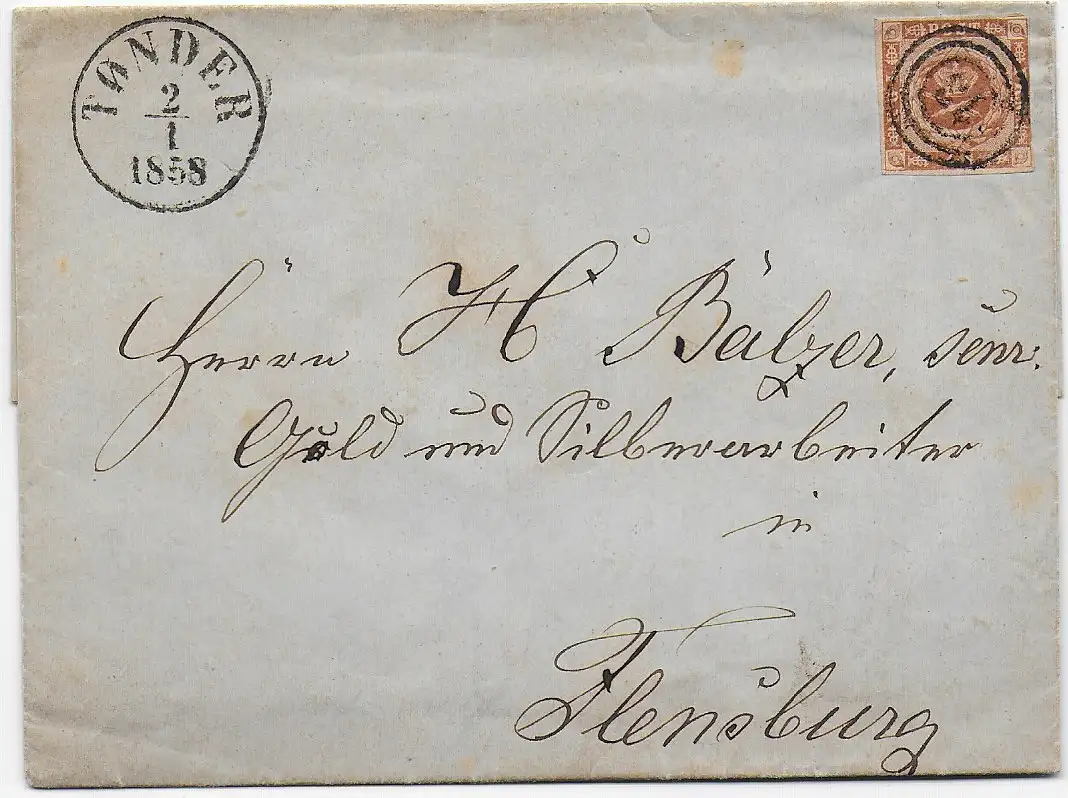 TØNDER
2
1
1858
Herrn H Bälzer, senr:
Gold und Silberarbeiter
in
Flensburg